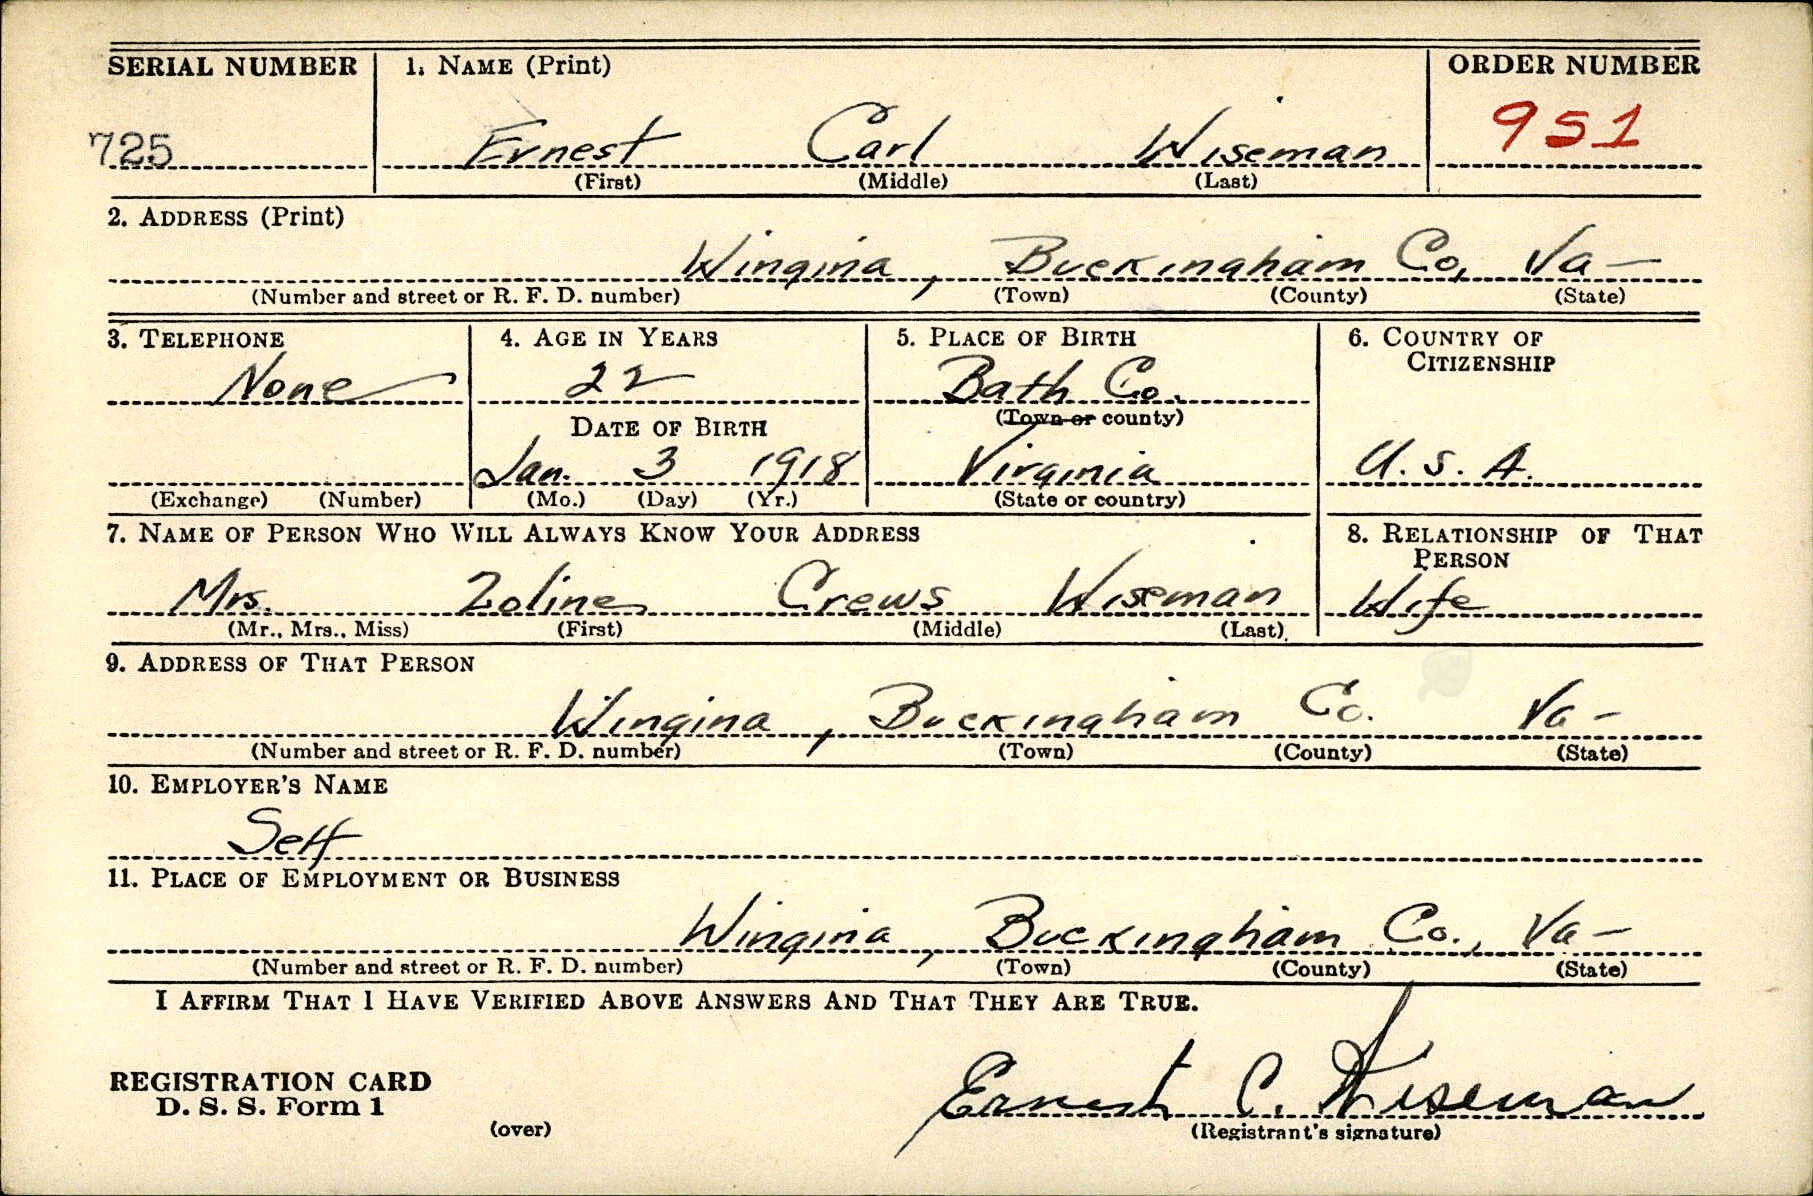 SERIAL NUMBER 1. NAME (Print) ORDER NUMBER
725 Ernest Carl Wiseman 951
(First) (Middle) (Last)
2. ADDRESS (Print)
Wingina, Buckingham Co, Va-
(Number and street or R. F. D. number) (Town) (County) (State)
3. TELEPHONE 4. AGE IN YEARS 5. PLACE OF BIRTH 6. COUNTRY OF
CITIZENSHIP
None 22 Bath Co.
DATE OF BIRTH (Town or county)
Jan. 3 1918 Virginia U. S. A.
(Exchange) (Number) (Mo.) (Day) (Yr.) (State or country)
7. NAME OF PERSON WHO WILL ALWAYS KNOW YOUR ADDRESS 8. RELATIONSHIP OF THAT
PERSON
Mrs. Zoline Crews Wiseman Wife
(Mr., Mrs., Miss) (First) (Middle) (Last)
9. ADDRESS OF THAT PERSON
Wingina, Buckingham Co. Va-
(Number and street or R. F. D. number) (Town) (County) (State)
10. EMPLOYER'S NAME
Self
11. PLACE OF EMPLOYMENT OR BUSINESS
Wingina, Buckingham Co., Va-
(Number and street or R. F. D. number) (Town) (County) (State)
I AFFIRM THAT I HAVE VERIFIED ABOVE ANSWERS AND THAT THEY ARE TRUE.
REGISTRATION CARD
D. S. S. Form 1 Ernest C. Wiseman
(over) (Registrant's signature)